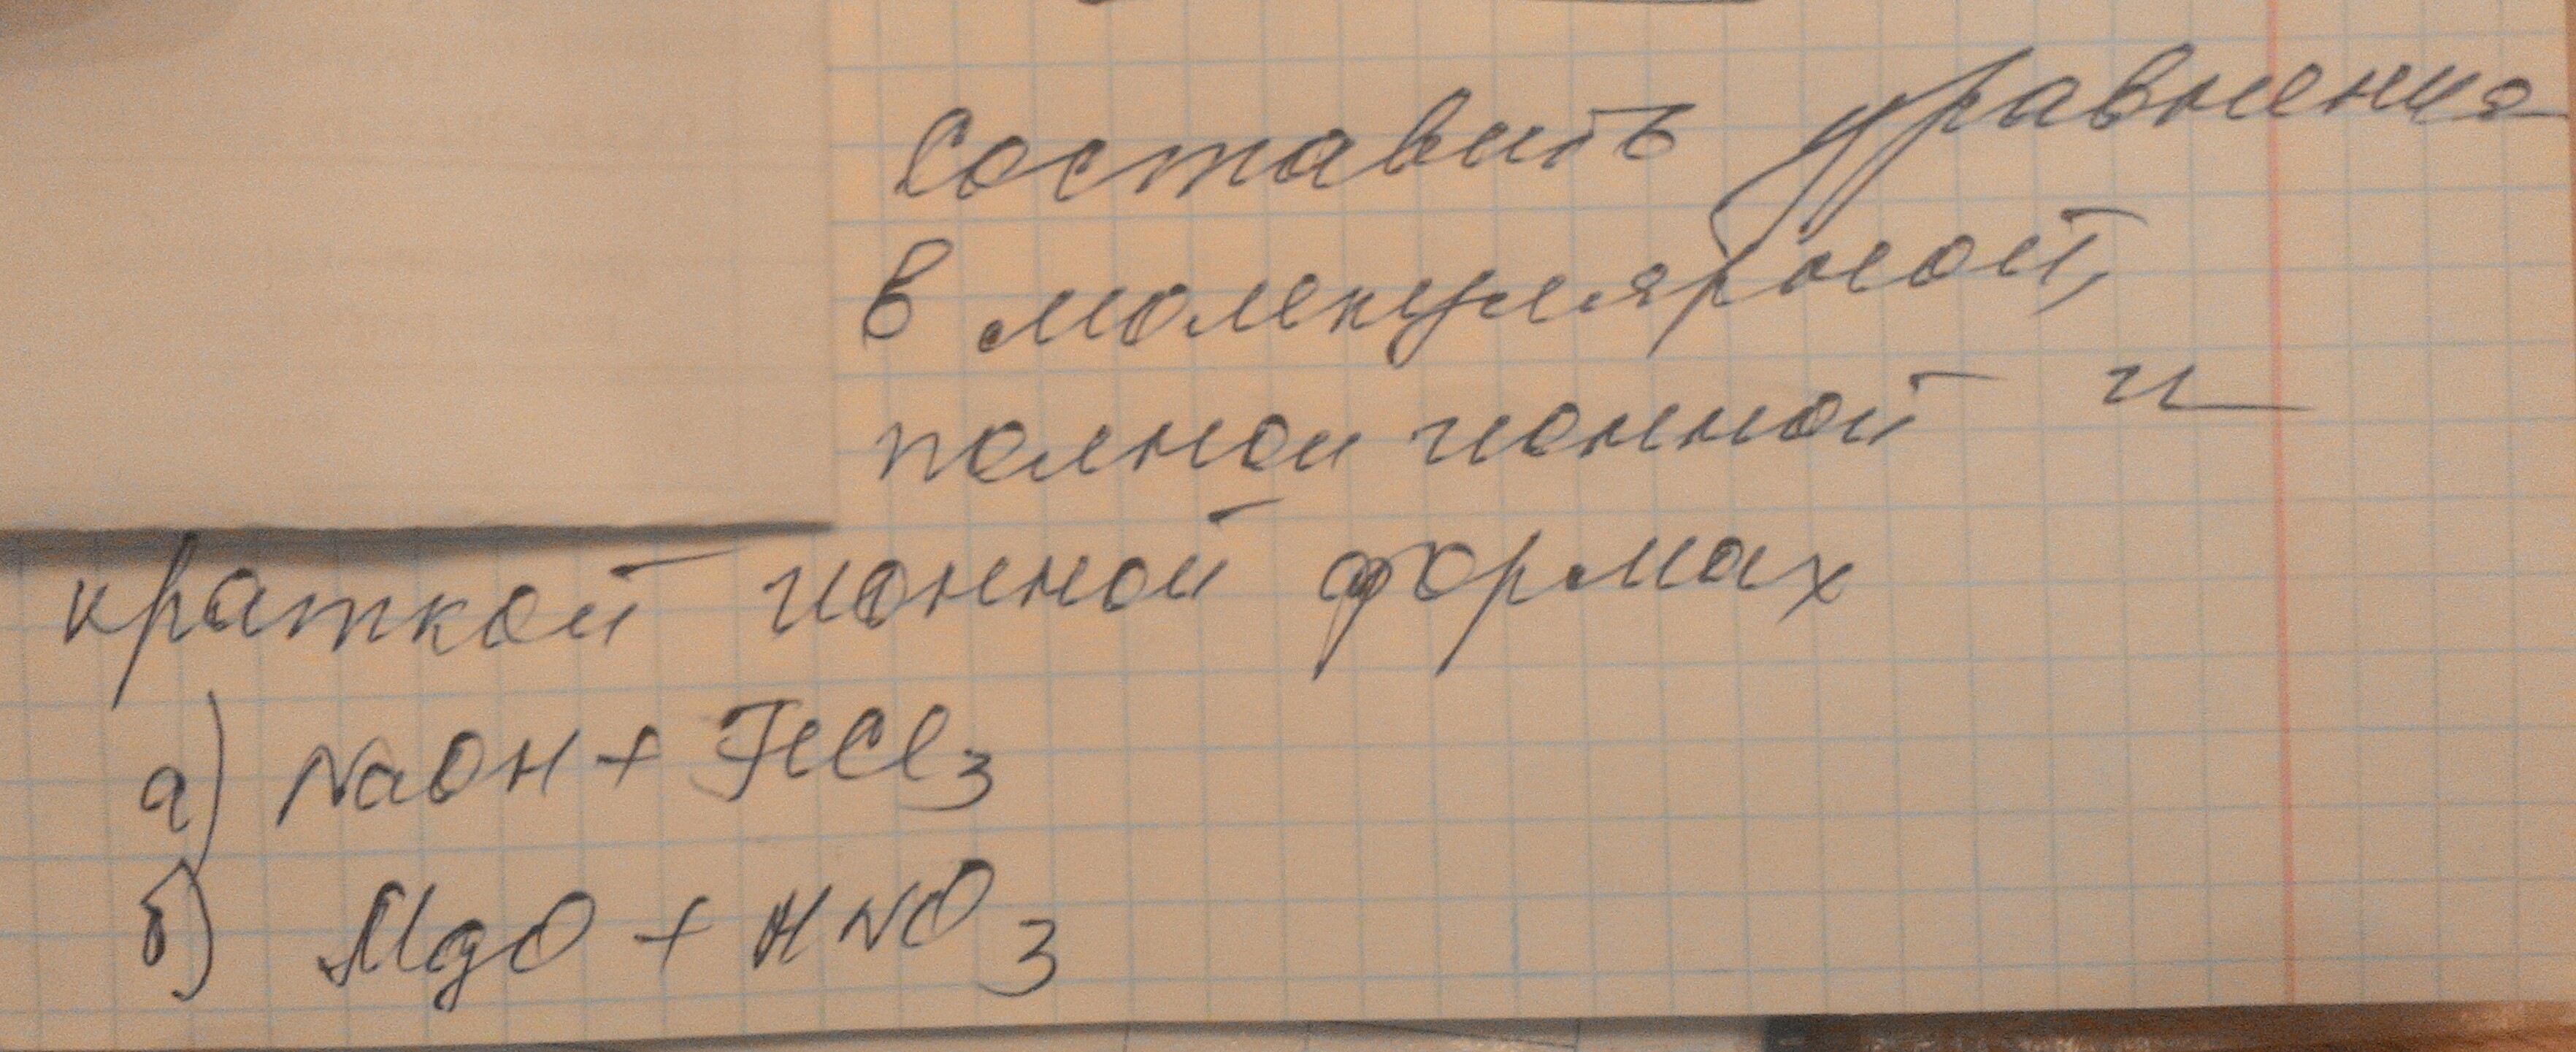 Составить уравнения
в молекулярной,
полной ионной и
краткой ионной формах
а) NaOH + FeCl₃
б) MgO + HNO₃